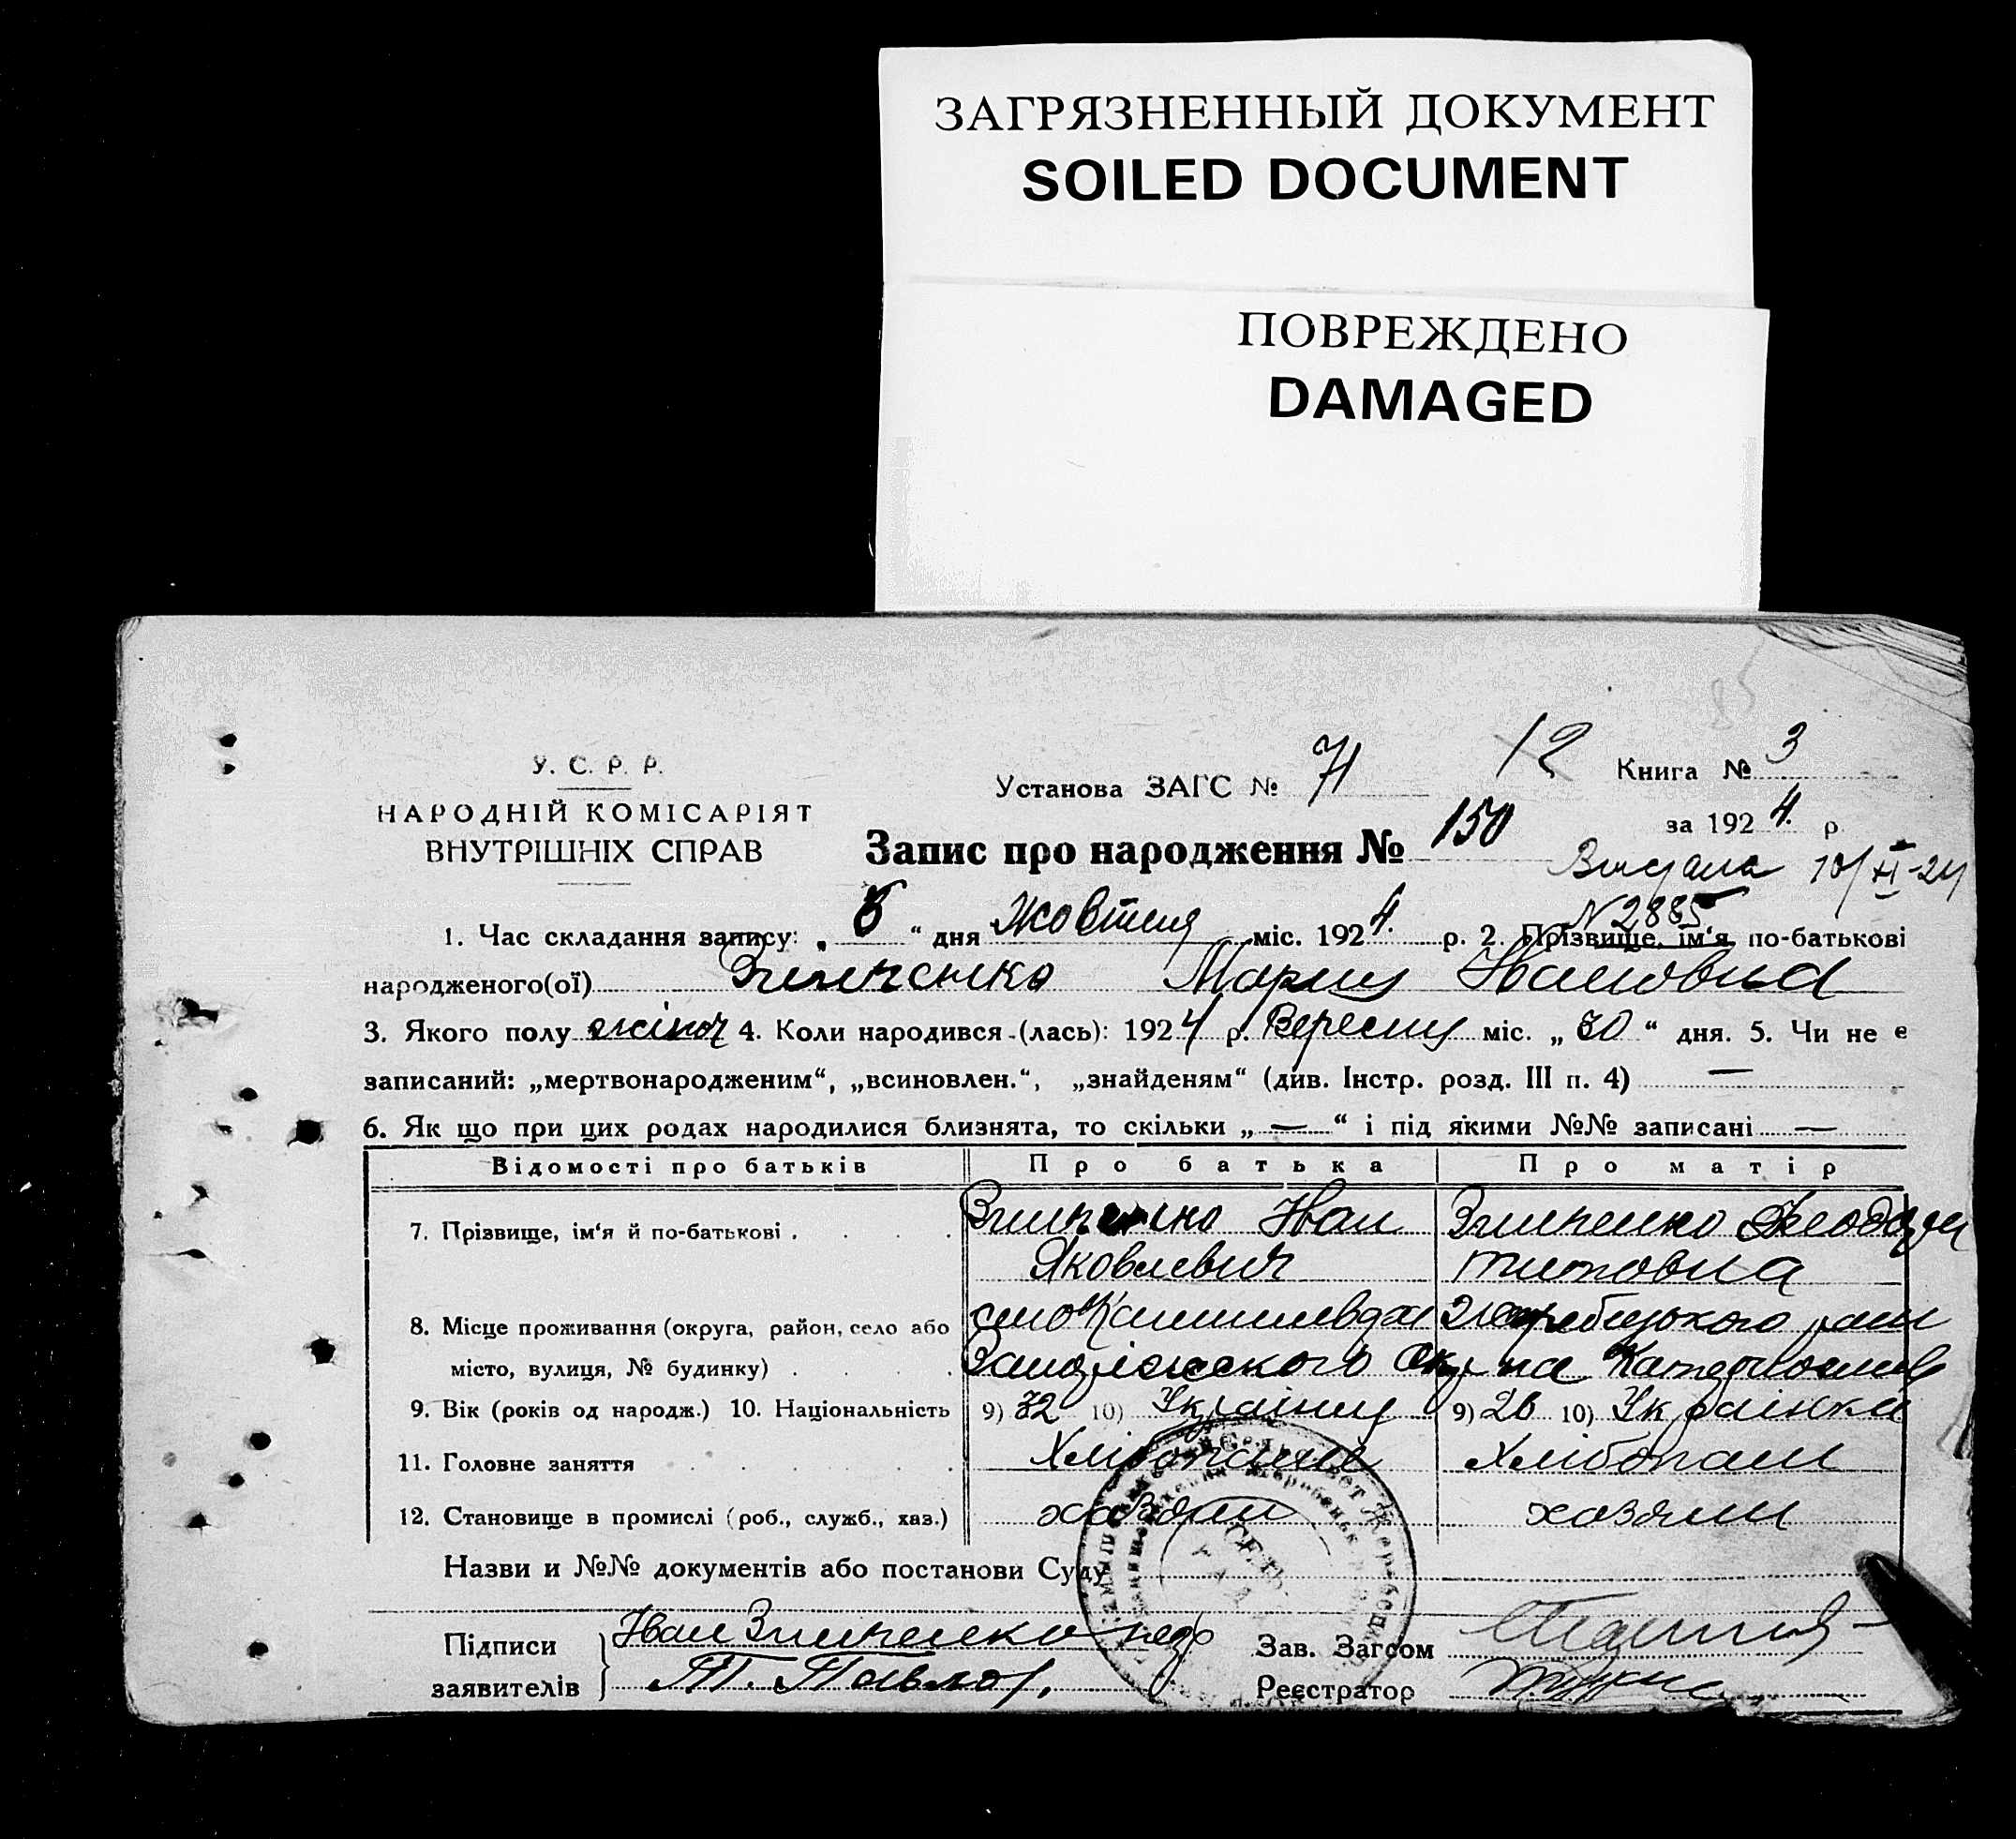 ЗАГРЯЗНЕННЫЙ ДОКУМЕНТ
SOILED DOCUMENT
ПОВРЕЖДЕНО
DAMAGED
85
У. С. Р. Р.
НАРОДНІЙ КОМІСАРІЯТ
ВНУТРІШНІХ СПРАВ
Установа ЗАГС № 71
12 Книга № 3
за 1924 р
Запис про народження № 150
10/XI-24
N 2885
1. Час складання запису: „6“ дня Жовтня міс. 1924 р. 2. Прізвище, ім‘я по-батькові
народженого(ої) Зінченко Мария Ивановна
3. Якого полу жіноч 4. Коли народився-(лась): 1924 р. Вересня міс. „30“ дня. 5. Чи не є
записаний: „мертвонародженим“, „всиновлен.“, „знайденям“ (див. Інстр. розд. III п. 4) —
6. Як що при цих родах народилися близнята, то скільки „—“ і під якими №№ записані —
Відомості про батьків Про батька Про матір
7. Прізвище, ім‘я й по-батькові . . . . Зинченко Иван Зинченко
Яковлевич Титовна
8. Місце проживання (округа, район, село або село
місто, вулиця, № будинку) . . . .
9. Вік (років од народж.) 10. Національність 9) 32 10) Українец 9) 26 10) Українка
11. Головне заняття . . . . . . Хлібопаш Хлібопаш
12. Становище в промислі (роб., служб., хаз.) хазяин хазяин
Назви и №№ документів або постанови Суду
Підписи Иван Зинченко Зав. Загсом
заявителів Т. Павлов Реєстратор